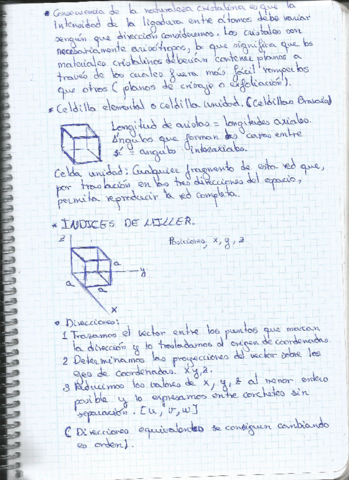 * Consecuencia de la naturaleza cristalina es que la
intensidad de la ligadura entre átomos debe variar
según que dirección consideremos. Los cristales son
necesariamente anisótropos, lo que significa que los
materiales cristalinos deberían contener planos a
través de los cuales fuera más fácil romperlos
que otros (planos de clivaje o exfoliación).
* Celdilla elemental o celdilla unidad. (Celdillas Bravais)
Longitud de aristas = longitudes axiales.
Ángulos que forman las caras entre
sí = ángulos interaxiales.
Celda unidad: Cualquier fragmento de esta red que,
por traslación en las tres direcciones del espacio,
permita reproducir la red completa.
* INDICES DE MILLER.
z
Posiciones, x, y, z
a
y
a
x
* Direcciones:
1 Trazamos el vector entre los puntos que marcan
la dirección y lo trasladamos al origen de coordenadas.
2 Determinamos las proyecciones del vector sobre los
ejes de coordenadas. x, y, z.
3 Reducimos los valores de x, y, z al menor entero
posible y lo expresamos entre corchetes sin
separación. [u, v, w]
( Direcciones equivalentes se consiguen cambiando
es orden).